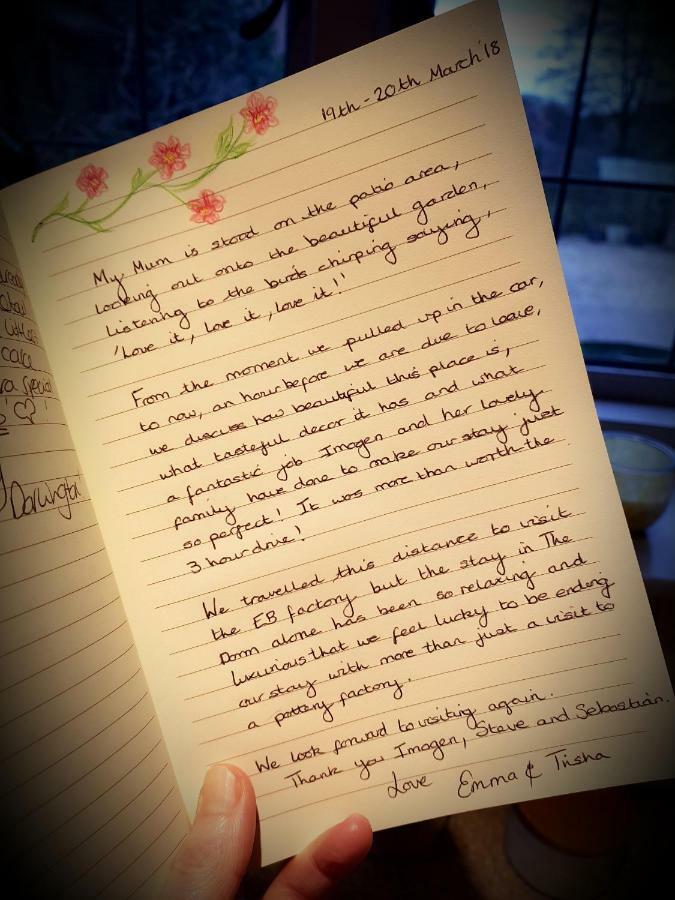 19th - 20th March '18
My Mum is stood on the patio area,
looking out onto the beautiful garden,
listening to the birds chirping saying,
'love it, love it, love it!'
From the moment we pulled up in the car,
to now, an hour before we are due to leave,
we discuss how beautiful this place is,
what tasteful decor it has and what
a fantastic job Imogen and her lovely
family have done to make our stay just
so perfect! It was more than worth the
3 hour drive!
We travelled this distance to visit
the EB factory but the stay in The
Dorm alone has been so relaxing and
luxurious that we feel lucky to be ending
our stay with more than just a visit to
a pottery factory.
We look forward to visiting again.
Thank you Imogen, Steve and Sebastian.
Love Emma & Trisha
special